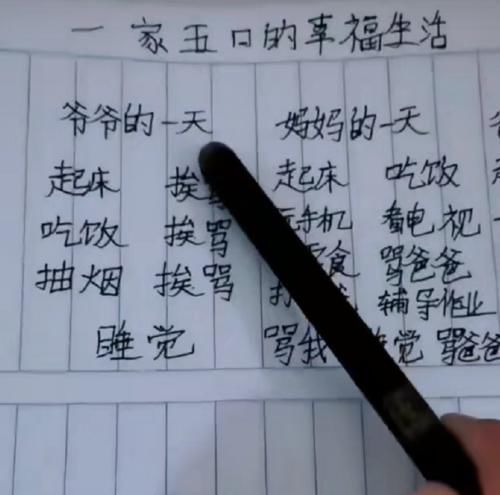 一家五口的幸福生活
爷爷的一天 妈妈的一天
起床 挨骂 起床 吃饭
吃饭 挨骂 手机 看电视
抽烟 挨骂 食 骂爸爸
辅导作业
睡觉 骂我 觉 骂爸爸